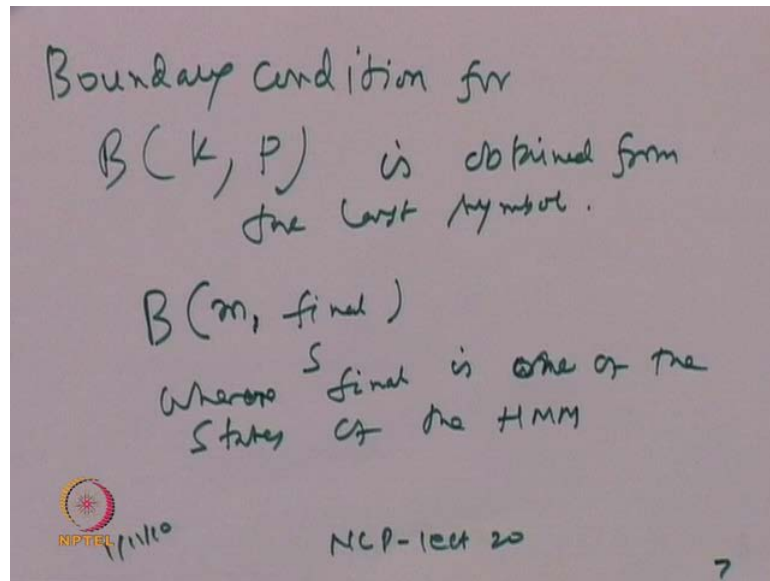 Boundary condition for
B(k, p) is obtained from
the last symbol.
B(m, final)
where S final is one of the
states of the HMM
NPTEL 1/11/10
NLP-lect 20
7